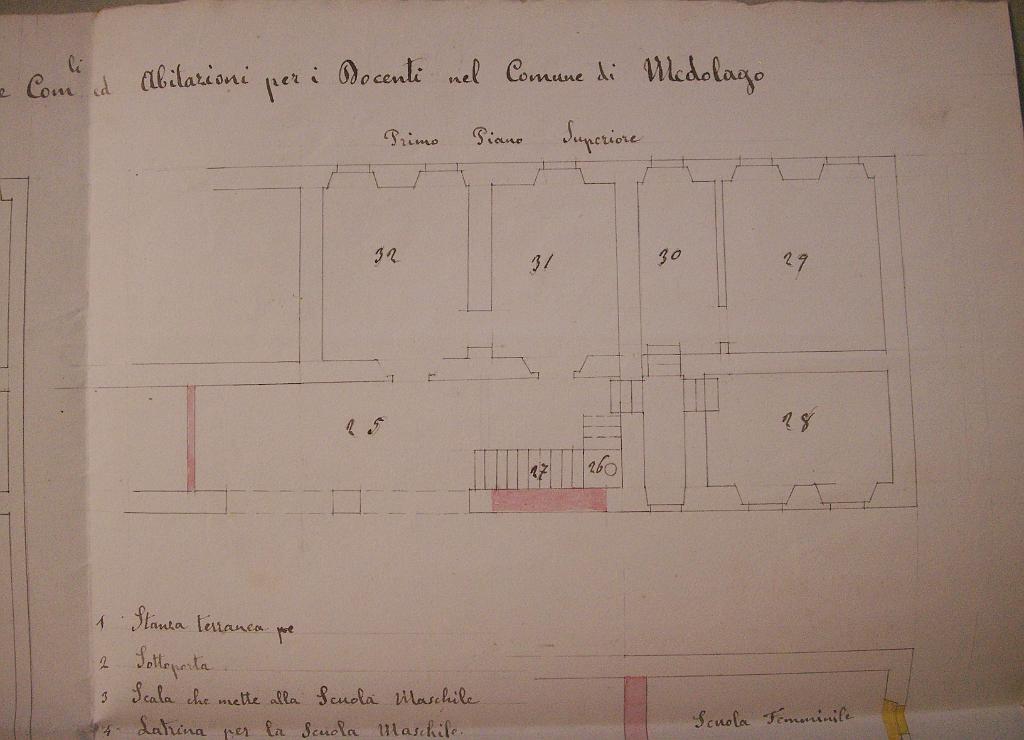 e Com.li ed Abitazioni per i Docenti nel Comune di Medolago
Primo Piano Superiore
32 31 30 29
25 28
27 26
1 Stanza terranea pe
2 Sottoporta
3 Scala che mette alla Scuola Maschile
4 Latrina per la Scuola Maschile.
Scuola Femminile